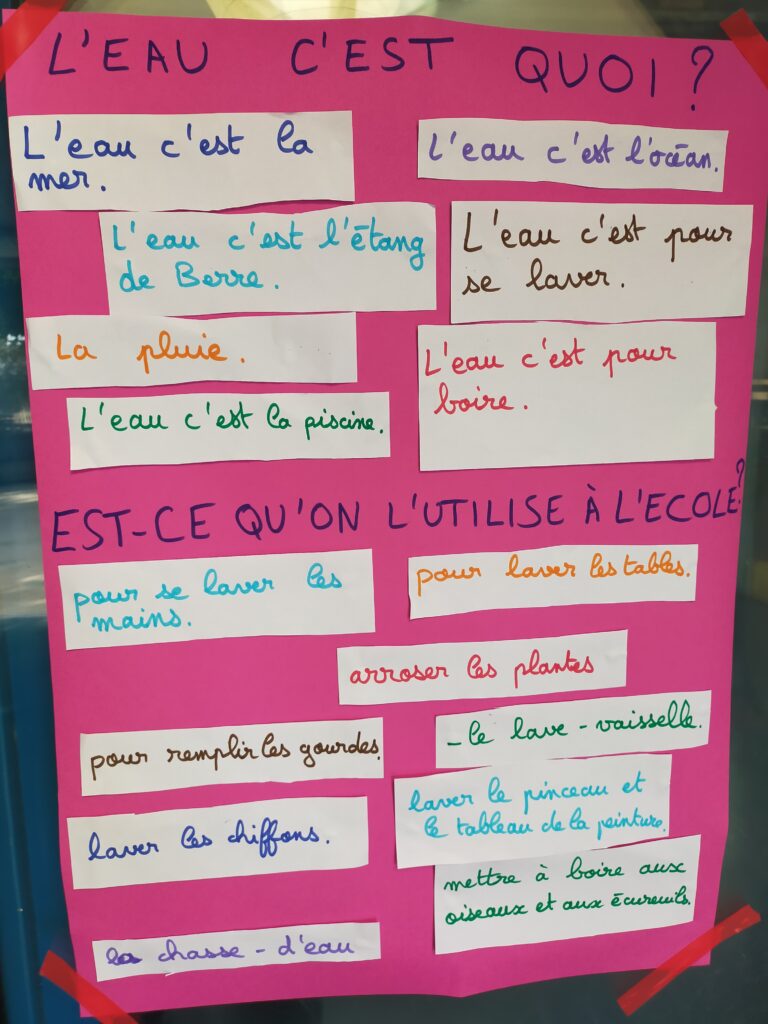 L'EAU C'EST QUOI ?
L'eau c'est la
mer.
L'eau c'est l'océan.
L'eau c'est l'étang
de Berre.
L'eau c'est pour
se laver.
La pluie.
L'eau c'est pour
boire.
L'eau c'est la piscine.
EST-CE QU'ON L'UTILISE À L'ECOLE ?
pour se laver les
mains.
pour laver les tables.
arroser les plantes
pour remplir les gourdes.
- le lave-vaisselle.
laver les chiffons.
laver le pinceau et
le tableau de la peinture.
mettre à boire aux
oiseaux et aux écureuils.
la chasse-d'eau